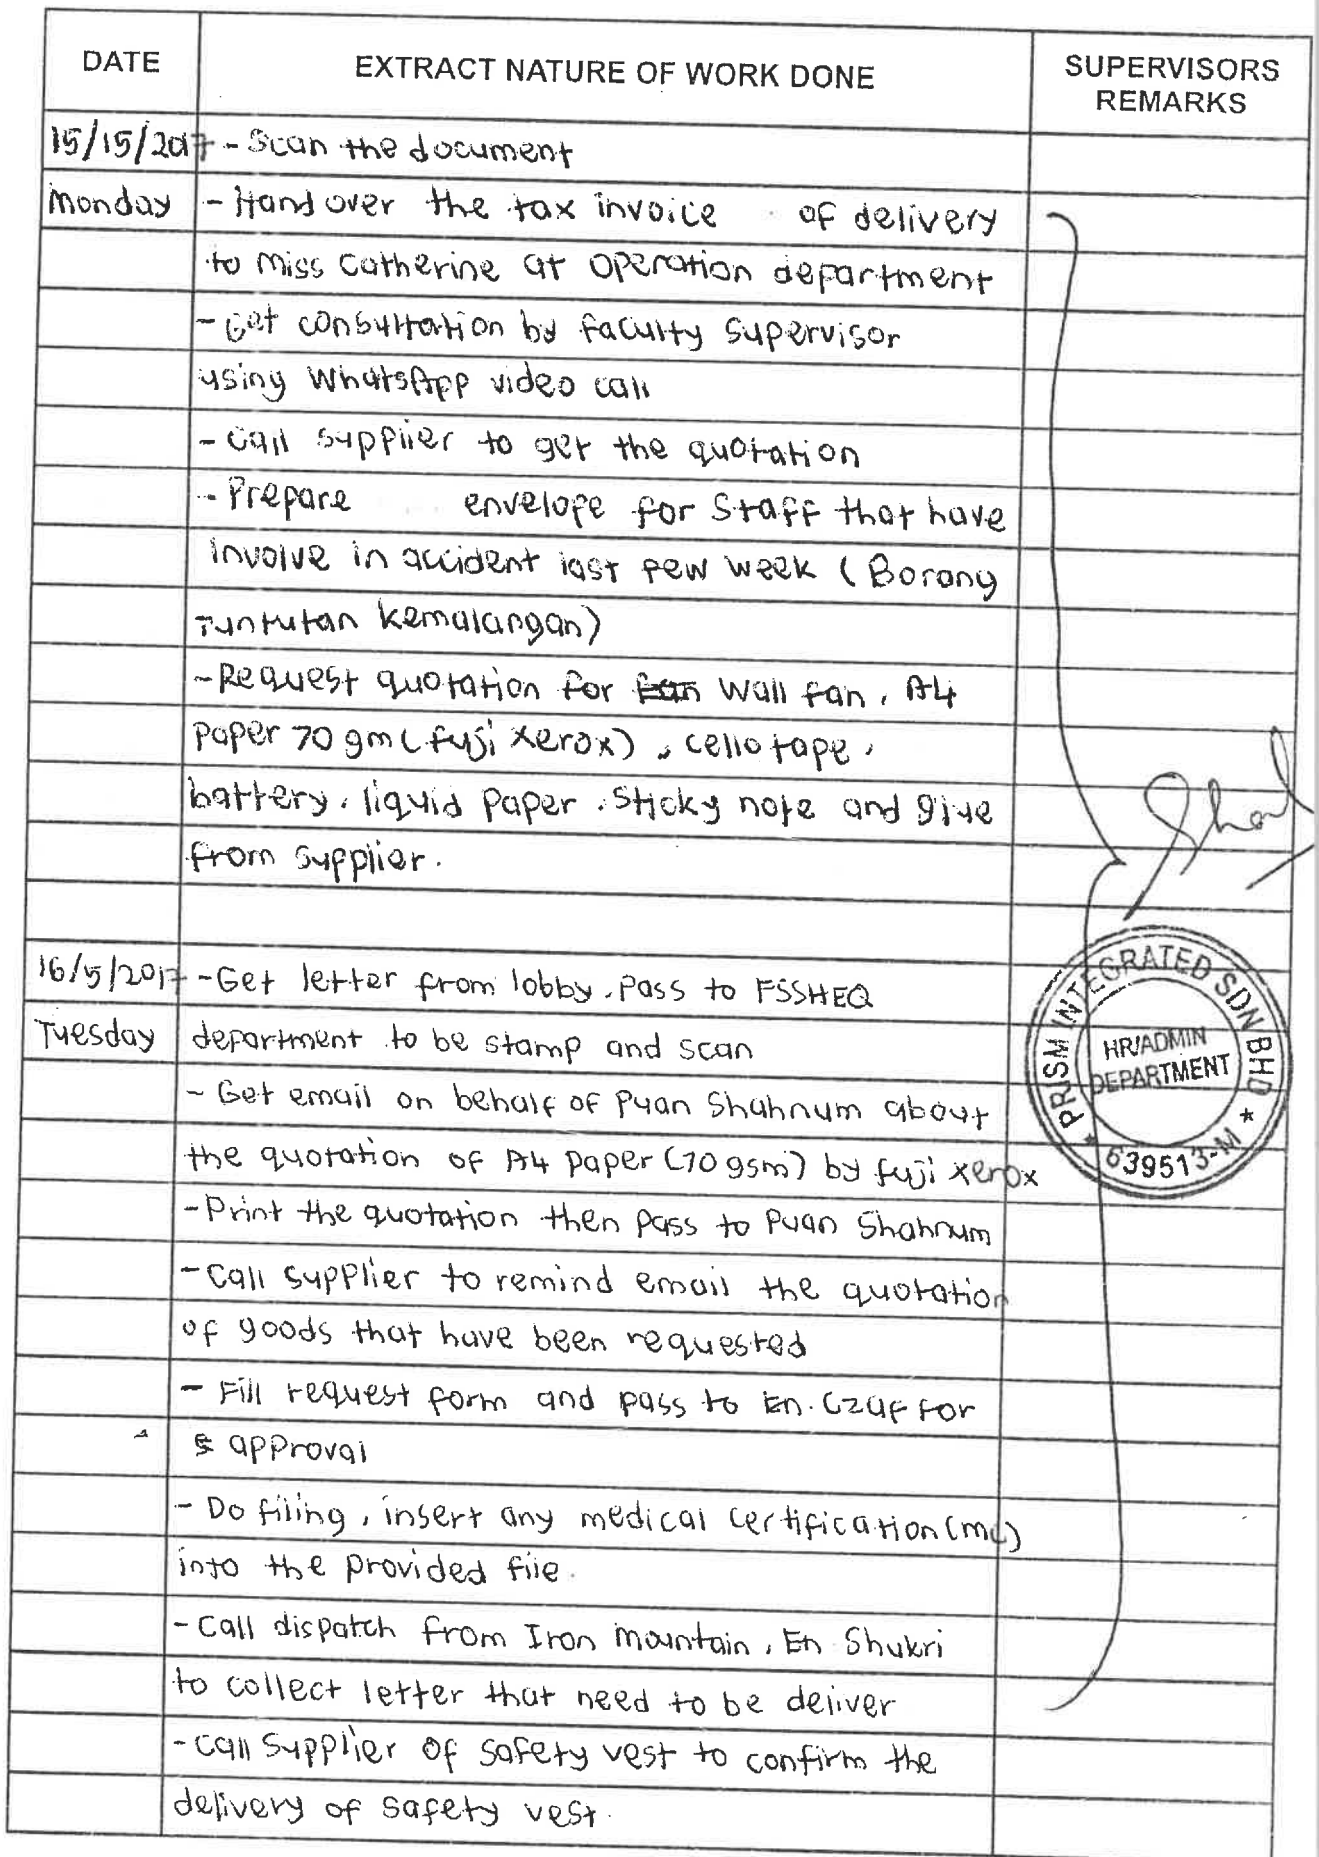 DATE
EXTRACT NATURE OF WORK DONE
SUPERVISORS
REMARKS
15/15/2017 - Scan the document
Monday - Hand over the tax invoice of delivery
to Miss Catherine at Operation department
- Get consultation by faculty supervisor
using WhatsApp video call
- Call supplier to get the quotation
- Prepare envelope for Staff that have
involve in accident last few week (Borang
Tuntutan Kemalangan)
- Request quotation for fan Wall fan, A4
paper 70 gm (fuji xerox), cello tape,
battery, liquid paper, sticky note and glue
from supplier.
16/5/2017 - Get letter from lobby, pass to FSSHEQ
Tuesday department to be stamp and scan
- Get email on behalf of Puan Shahnum about
the quotation of A4 paper (70gsm) by fuji xerox
- Print the quotation then pass to Puan Shahnum
- Call supplier to remind email the quotation
of goods that have been requested
- Fill request form and pass to En. for
approval
- Do filing, insert any medical certification (mc)
into the provided file.
- Call dispatch from Iron mountain, En Shukri
to collect letter that need to be deliver
- Call supplier of safety vest to confirm the
delivery of safety vest.
PRISM INTEGRATED SDN BHD
HR/ADMIN
DEPARTMENT
639513-M